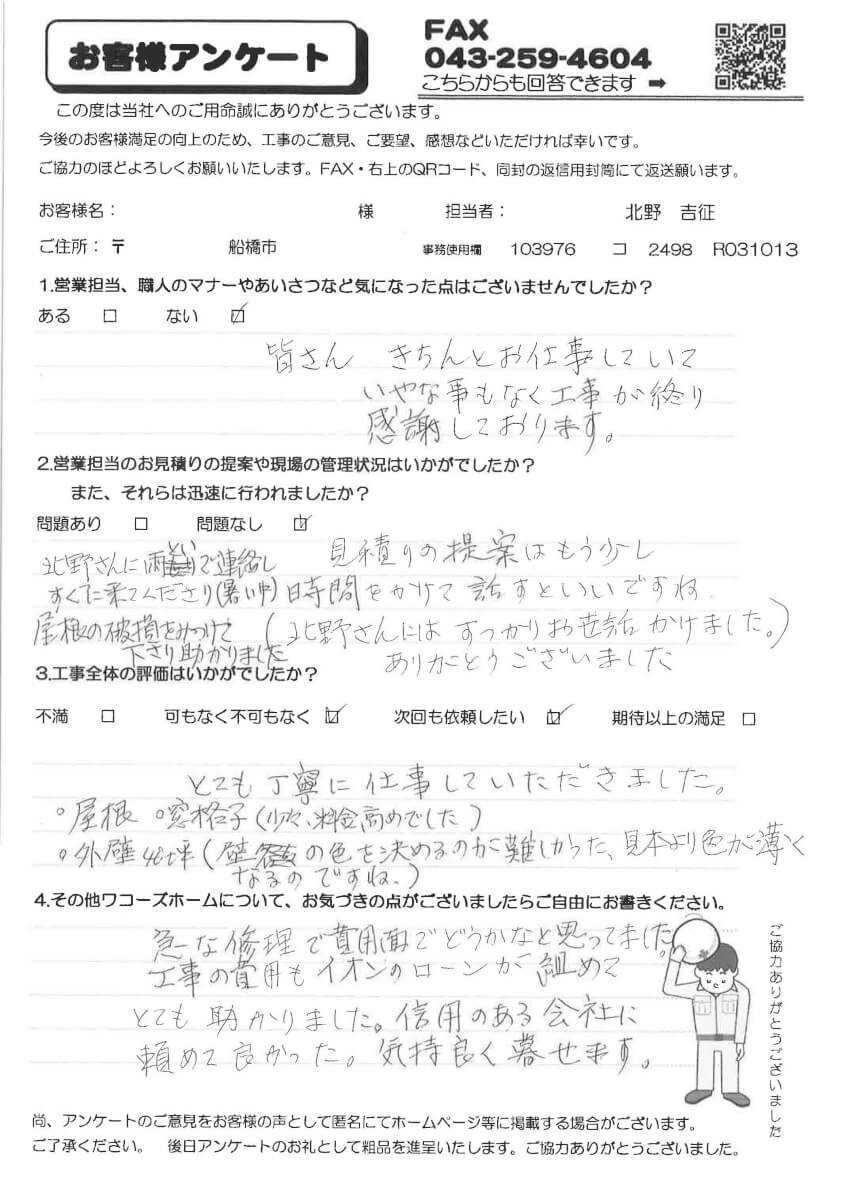 お客様アンケート
FAX
043-259-4604
こちらからも回答できます ➡
この度は当社へのご用命誠にありがとうございます。
今後のお客様満足の向上のため、工事のご意見、ご要望、感想などいただければ幸いです。
ご協力のほどよろしくお願いいたします。FAX・右上のQRコード、同封の返信用封筒にて返送願います。
お客様名： 様 担当者： 北野 吉征
ご住所：〒 船橋市 事務使用欄 103976 コ 2498 R031013
1.営業担当、職人のマナーやあいさつなど気になった点はございませんでしたか？
ある □ ない ☑
皆さん きちんとお仕事していて
いやな事もなく工事が終り
感謝しております。
2.営業担当のお見積りの提案や現場の管理状況はいかがでしたか？
また、それらは迅速に行われましたか？
問題あり □ 問題なし ☑
北野さんに雨といで連絡し
すぐに来てくださり(暑い中)
屋根の破損をみつけて
下さり助かりました
見積りの提案はもう少し
時間をかけて話すといいですね。
(北野さんにはすっかりお世話かけました。)
ありがとうございました
3.工事全体の評価はいかがでしたか？
不満 □ 可もなく不可もなく ☑ 次回も依頼したい ☑ 期待以上の満足 □
とても丁寧に仕事していただきました。
○屋根 ○窓格子(少々、料金高めでした)
○外壁40坪(壁の色を決めるのが難しかった、見本より色が薄く
なるのですね。)
4.その他ワコーズホームについて、お気づきの点がございましたらご自由にお書きください。
急な修理で費用面でどうかなと思ってました。
工事の費用もイオンのローンが組めて
とても助かりました。信用のある会社に
頼めて良かった。気持良く暮せます。
ご協力ありがとうございました
尚、アンケートのご意見をお客様の声として匿名にてホームページ等に掲載する場合がございます。
ご了承ください。 後日アンケートのお礼として粗品を進呈いたします。ご協力ありがとうございました。